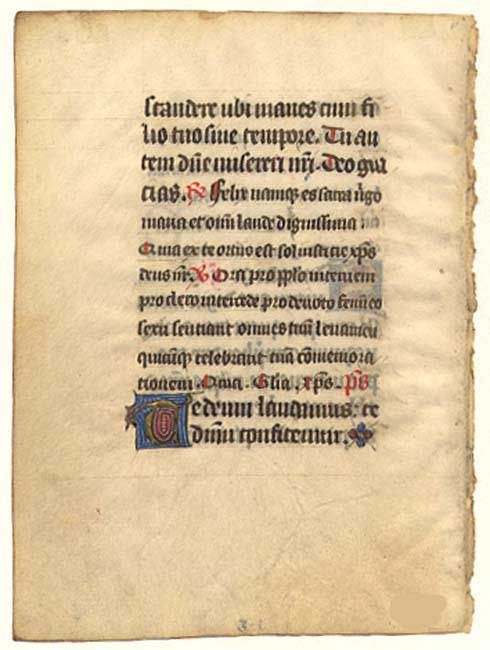 scandere ubi manes cum fi
lio tuo sine tempore. Tu au
tem dñe miserere nr̄i. Deo gra
cias. R̃ Felix namq̃ es sacra v̾go
maria et om̄i laude dignissima
Quia ex te ortus est sol iusticie xp̄s
deus nr̄. V̾ Ora pro pplo interueni
pro clero intercede pro deuoto femīeo
sexu sentiant omnes tuū leuamen
quicūq̃ celebrant tuā cōmemora
tionem. Quia. Glia. xp̄s. p̄s
Te deum laudamus: te
dnūm confitemur.